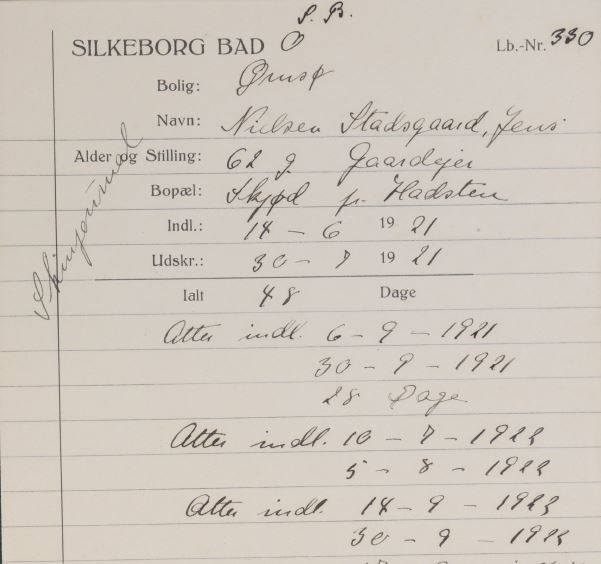 S. B.
SILKEBORG BAD O
Lb.-Nr. 330
Bolig: Ørnsø
Navn: Nielsen Stadsgaard, Jens
Alder og Stilling: 62 g. Gaardejer
Bopæl: Skjød pr. Hadsten
Indl.: 14 - 6 19 21
Udskr.: 30 - 7 19 21
Ialt 48 Dage
Atter indl. 6 - 9 - 1921
30 - 9 - 1921
28 Dage
Atter indl. 10 - 7 - 1922
5 - 8 - 1922
Atter indl. 14 - 9 - 1922
30 - 9 - 1922